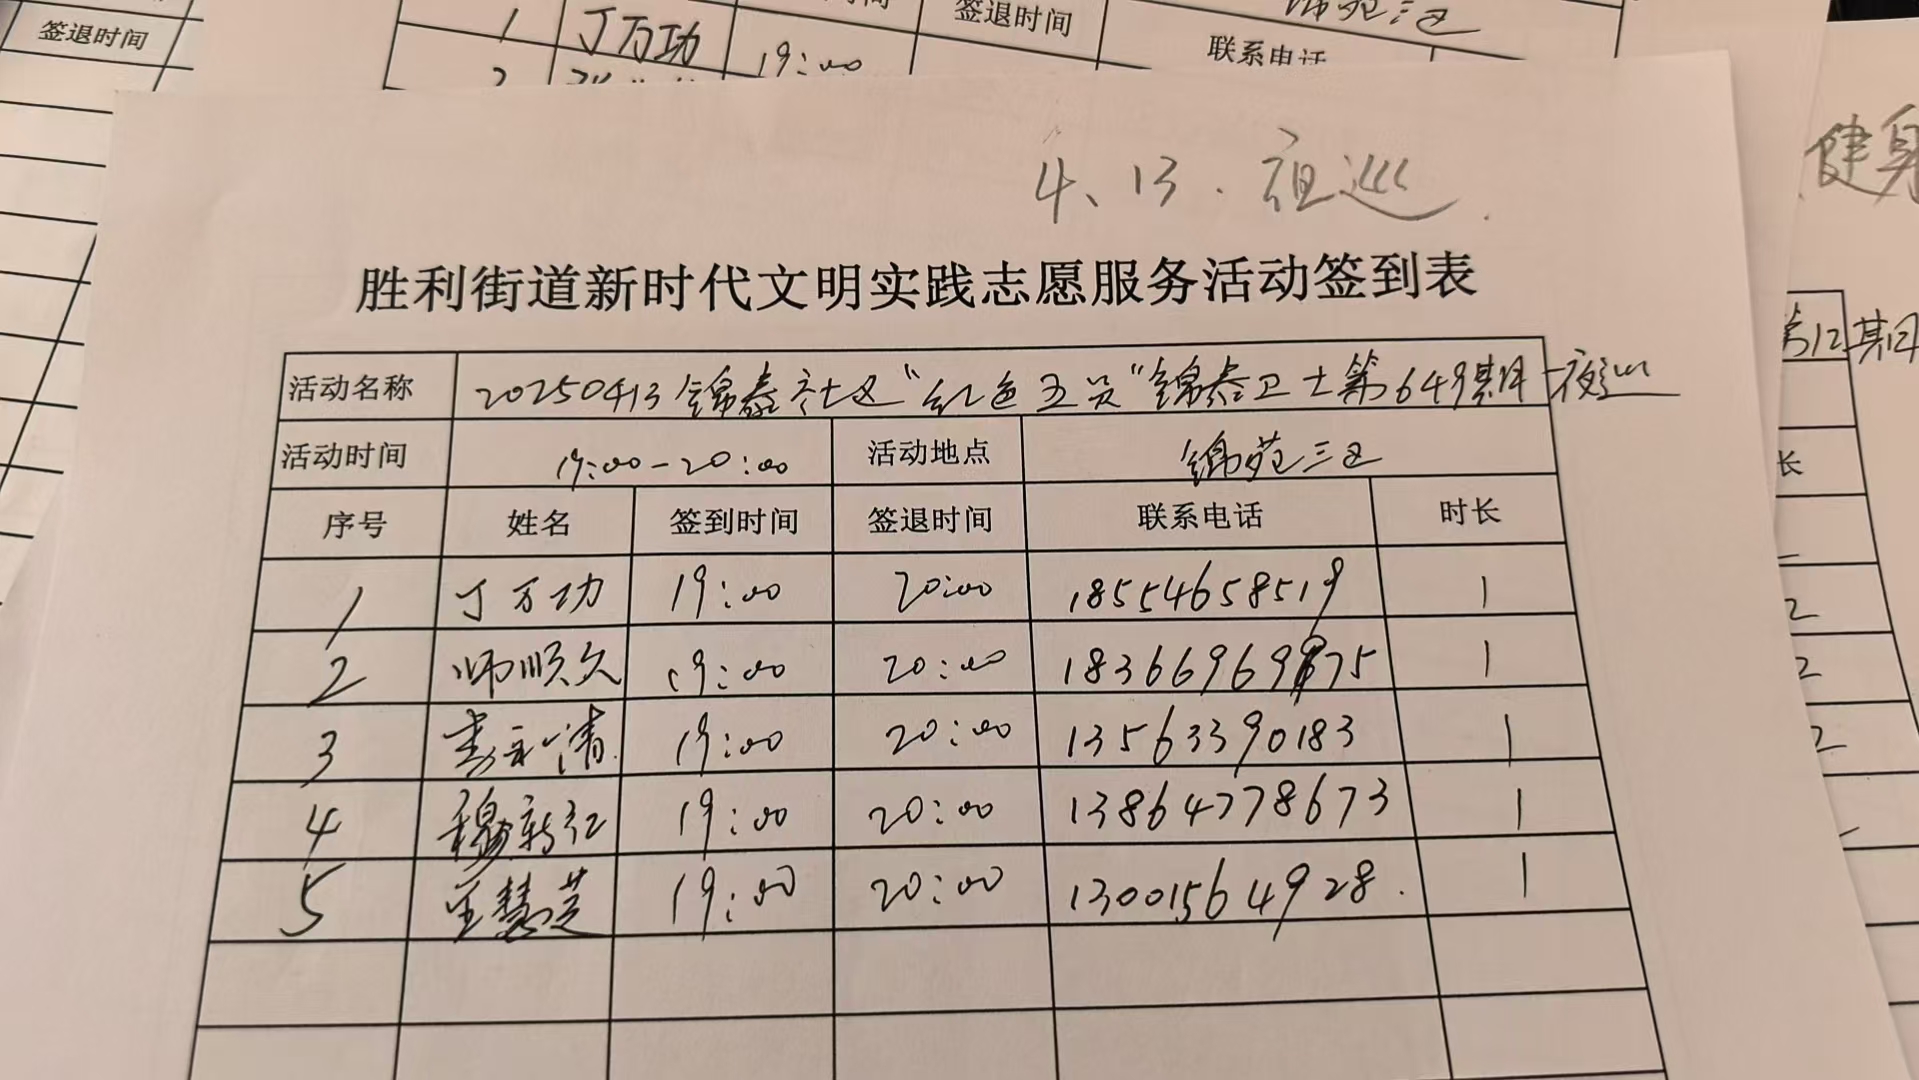 签退时间
1 丁万功 19:00 签退时间
联系电话
健身
4、13.夜巡.
胜利街道新时代文明实践志愿服务活动签到表
活动名称 20250413锦泰社区“红色五员”锦泰卫士第649期-夜巡
活动时间 19:00-20:00 活动地点 锦苑三区
序号 姓名 签到时间 签退时间 联系电话 时长
1 丁万功 19:00 20:00 18554658519 1
2 师顺久 19:00 20:00 1836696975 1
3 李永清 19:00 20:00 13563390183 1
4 穆新红 19:00 20:00 13864778673 1
5 王慧芝 19:00 20:00 13001564928. 1
第12期
长
2
2
2